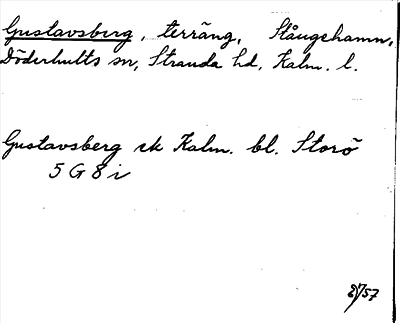 Gustavsberg, terräng, Stångehamn,
Döderhults sn, Stranda hd, Kalm. l.
Gustavsberg ek Kalm. bl. Storö
5 G 8 i
57